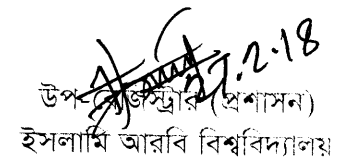 27.2.18
উপ-রেজিস্ট্রার (প্রশাসন)
ইসলামি আরবি বিশ্ববিদ্যালয়